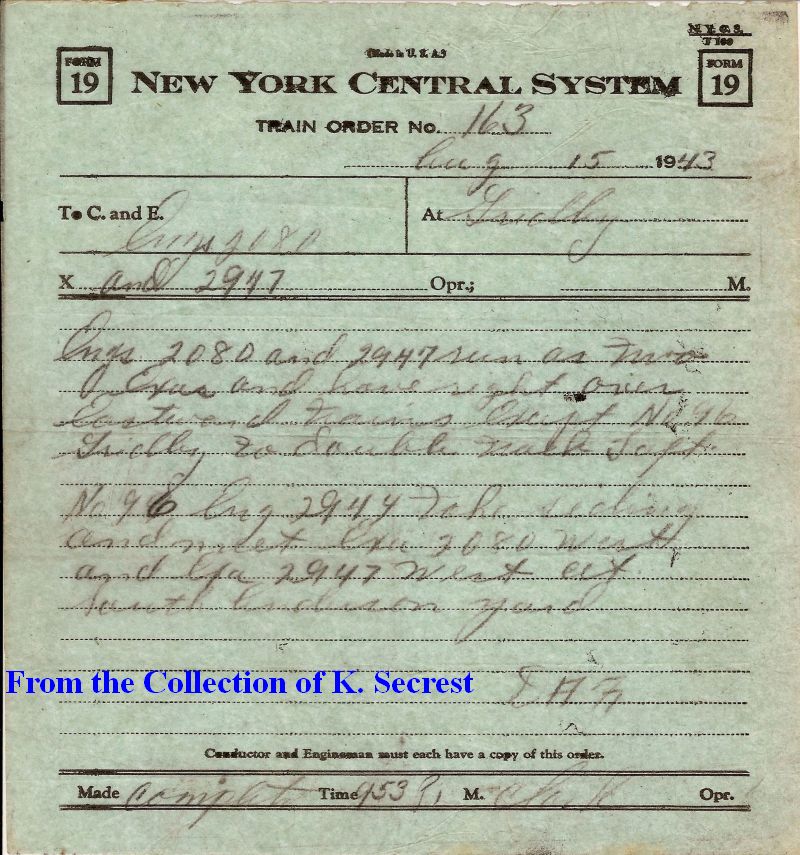 N Y C S.
T 100
(Made in U. S. A.)
FORM 19
NEW YORK CENTRAL SYSTEM
FORM 19
TRAIN ORDER No. 163
Aug 15 1943
To C. and E. Engs 2080
At Gridley
X and 2947 Opr.; M.
Engs 2080 and 2947 run as Two
Exas and have right over
Eastward trains Except No 96
Gridley to double track
No 96 Eng 2944 Take siding
and meet Exa 2080 West
and Exa 2947 West at
South Anderson yard
From the Collection of K. Secrest
Conductor and Engineman must each have a copy of this order.
Made complet Time 953 P. M. Opr.